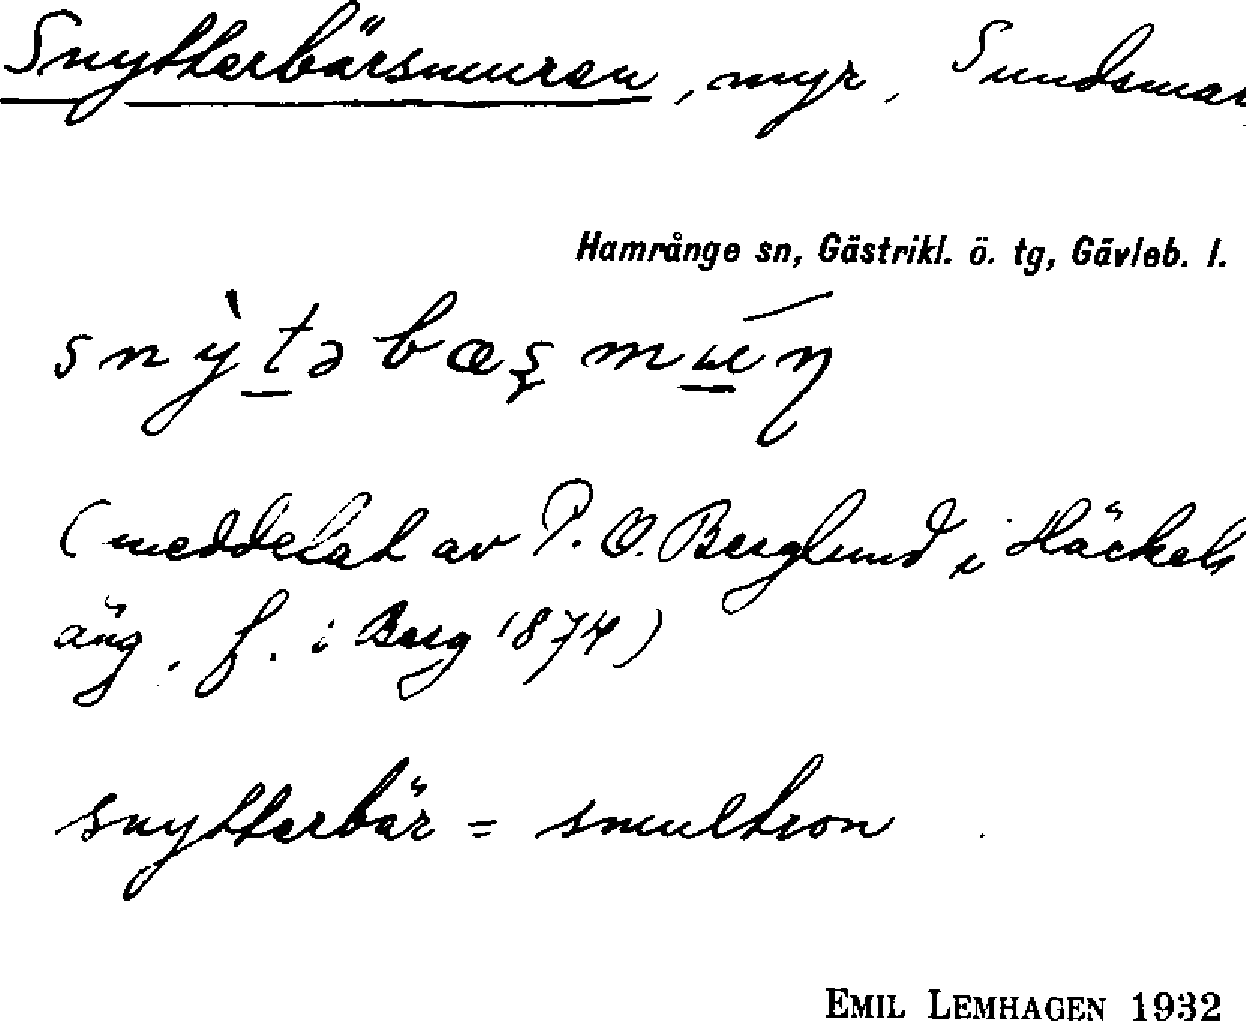 Snytterbärsmuren, myr, Sundsmar
Hamrånge sn, Gästrikl. ö. tg, Gävleb. l.
snỳtəbæşmúɳ
(meddelat av P. O. Berglund i Häckels
äng. f. i Berg 1874)
snytterbär = smultron
EMIL LEMHAGEN 1932